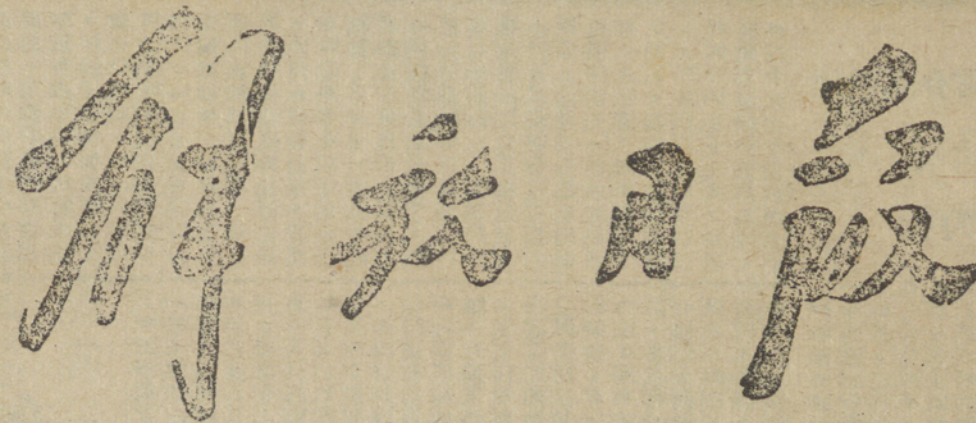 解放日报